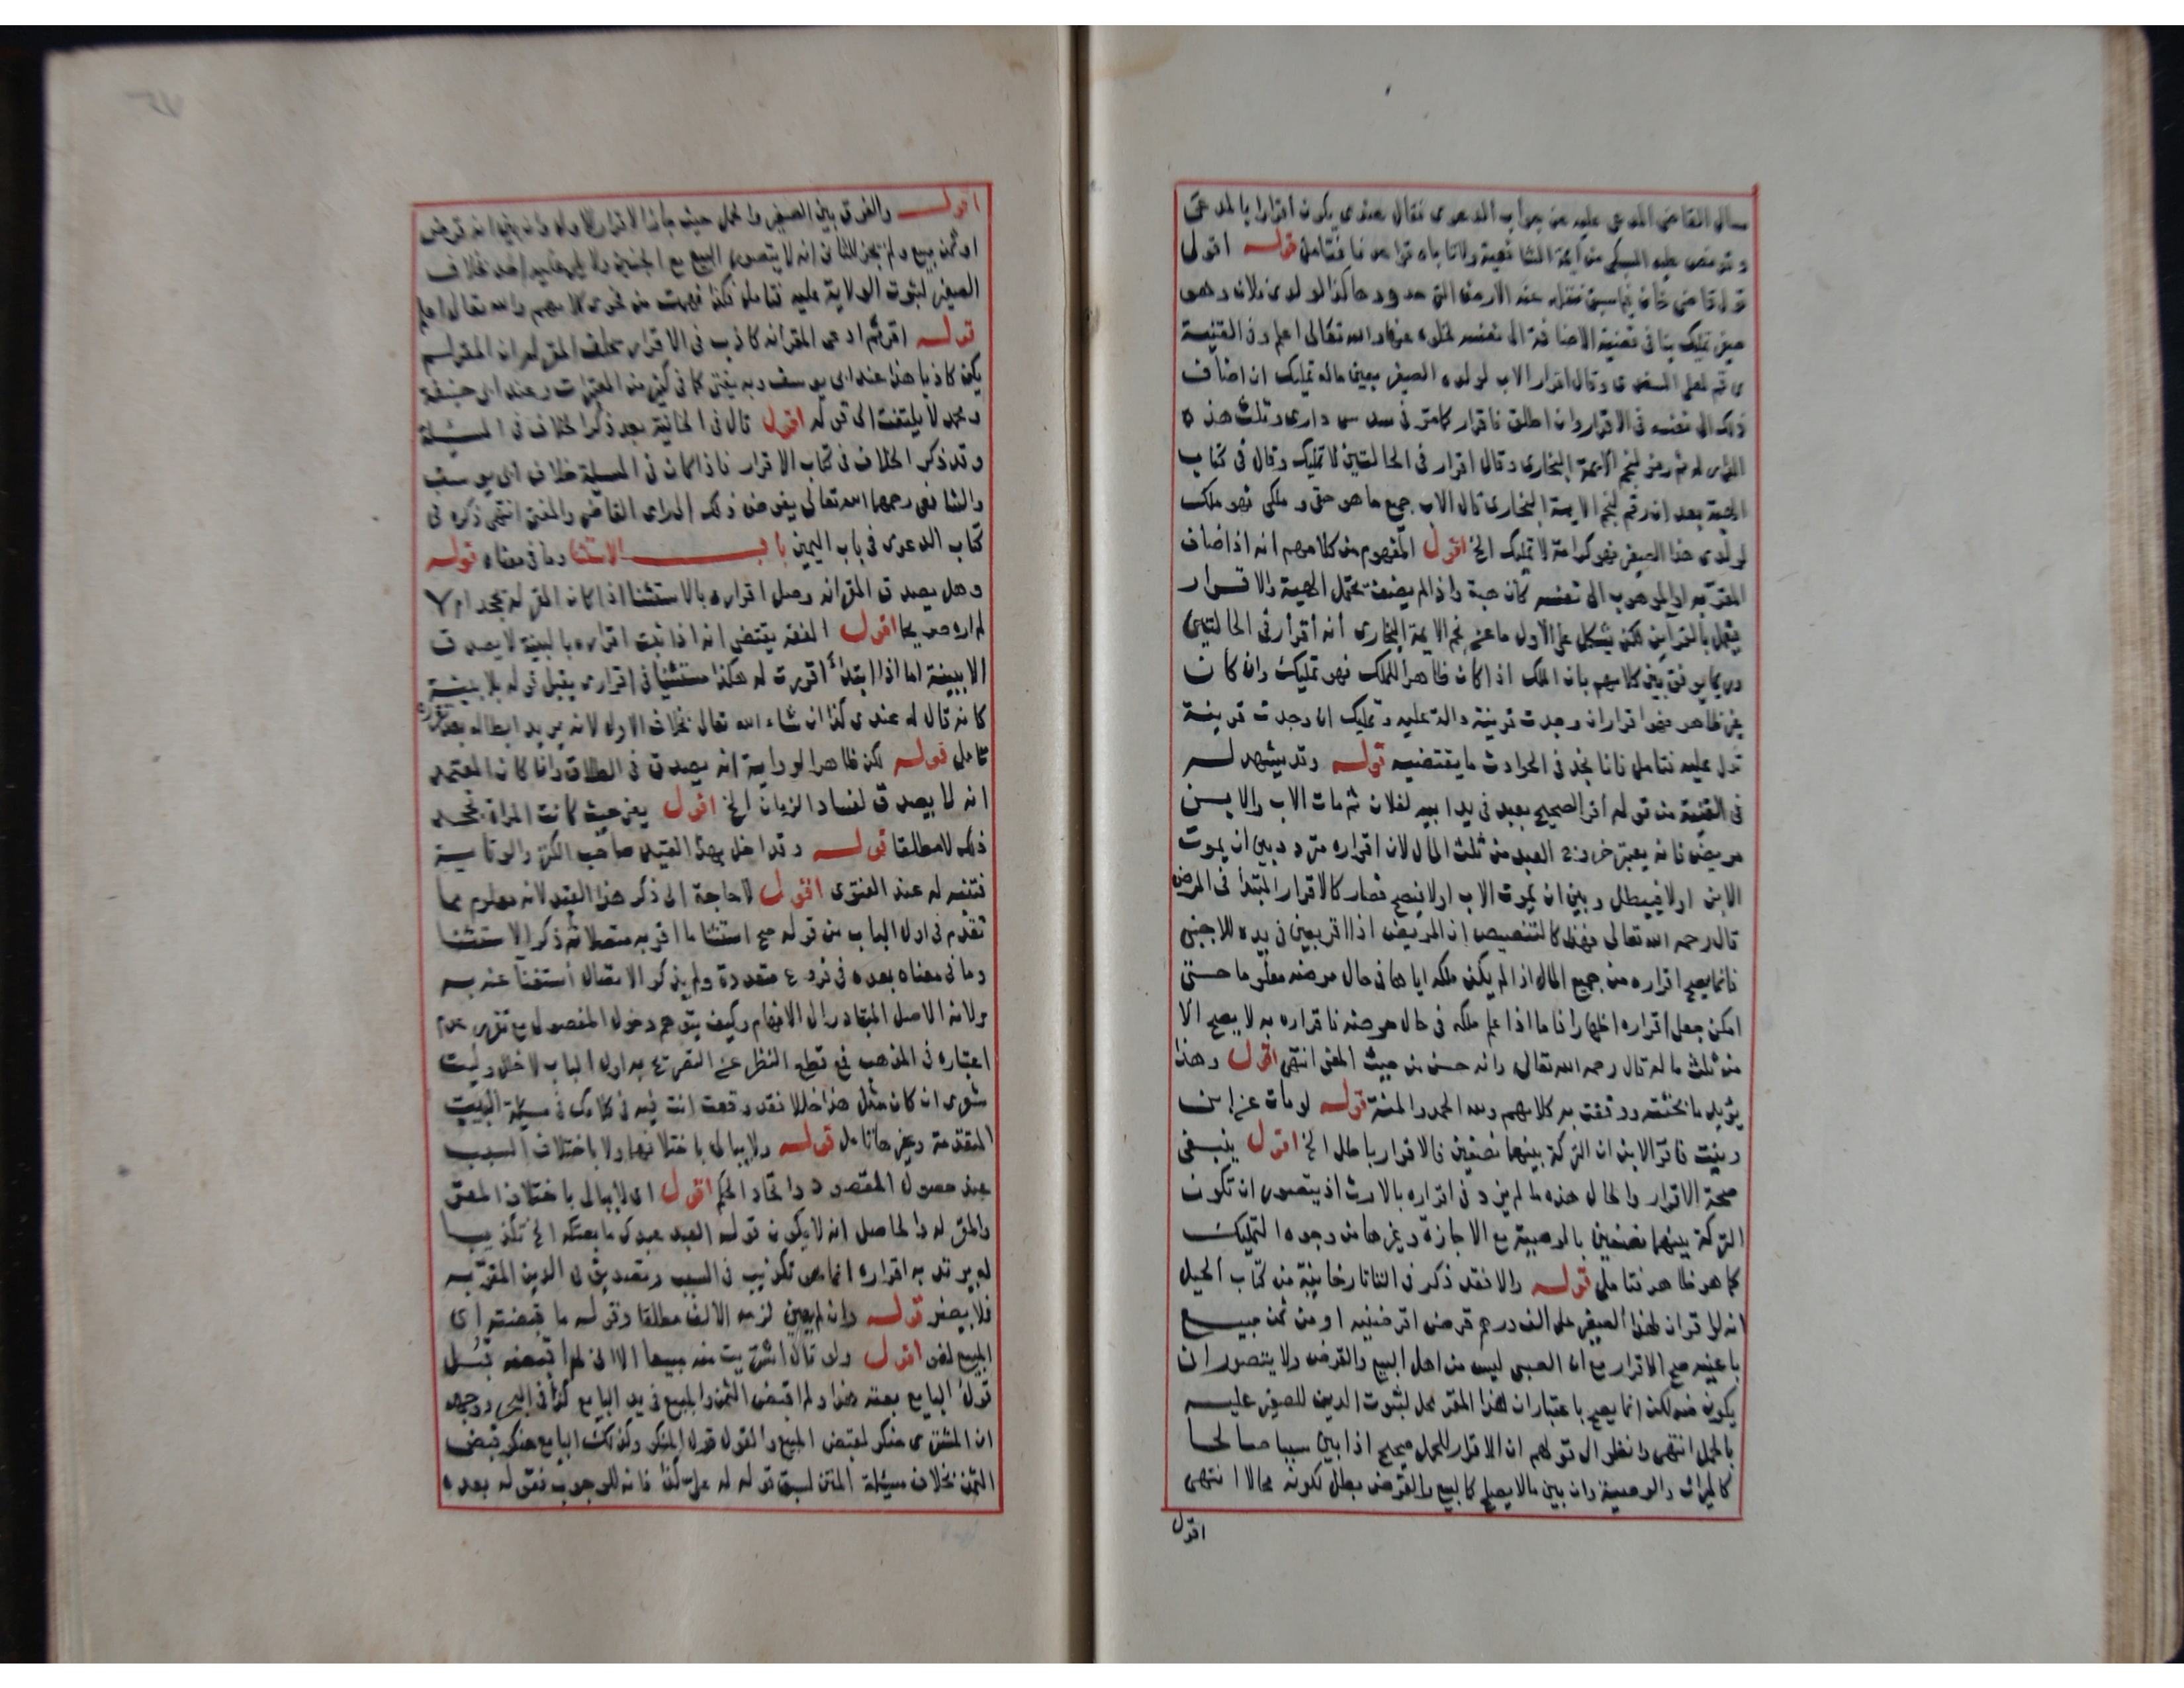 سال القاضى المدعى عليه عن جواب الدعوى فقال عندى يكون اقرارا بالمدعى
السبكى من ايمة الشافعية ولا تاباه قواعدنا فتامل قوله اقول
قول قاضى خان فيما سبق نقله عنه الارض التى حدودها كذا لولدى فلان وهو
صغير تمليك ينافى قضية الاضافة الى نفسه والله تعالى اعلم وفى القنية
وقال اقرار الاب لولده الصغير بعين ماله تمليك ان اضاف
ذلك الى نفسه فى الاقرار وان اطلق فاقرار كما مر فى سدس دارى وثلث هذه
الدار له ثم رمز لنجم الايمة البخارى وقال اقرار فى الحالتين لا تمليك وقال فى كتاب
الهبة بعد ان رقم لنجم الايمة البخارى قال الاب جميع ما هو حقى وملكى فهو ملك
لولدى هذا الصغير فهو كرامة لا تمليك الخ اقول المفهوم من كلامهم انه اذا اضاف
المقر به او الموهوب الى نفسه كان هبة واذا لم يضفه يحتمل الهبة والاقرار
فيعمل بالقراين لكن يشكل على الاول ما عن نجم الايمة البخارى انه اقرار فى الحالتين
وربما يوفق بين كلامهم بان الملك اذا كان ظاهرا للملك فهو تمليك وان كان
غير ظاهر فهو اقرار ان وجدت قرينة دالة عليه وتمليك ان وجدت قرينة
تدل عليه فتامل فانا نجد فى الحوادث ما يقتضيه قوله وقد يشهد له
فى القنية من قوله اقر الصحيح بعبد فى يد ابيه لفلان ثم مات الاب والابن
مريض فانه يعتبر خروج العبد من ثلث المال لان اقراره متردد بين ان يموت
الابن اولا فيبطل وبين ان يموت الاب اولا فيصح فصار كالاقرار المبتدأ فى المرض
قال رحمه الله تعالى فهذا كالتنصيص ان المريض اذا اقر بعين فى يده للاجنبى
فانما يصح اقراره من جميع المال اذا لم يكن ملكه اياها فى حال مرضه معلوما حتى
امكن جعل اقراره اظهارا فاما اذا علم ملكه فى حال مرضه فاقراره به لا يصح الا
من ثلث ماله قال رحمه الله تعالى وانه حسن من حيث المعنى انتهى اقول وهذا
يؤيد ما بحثته ووفقت به كلامهم ولله الحمد والمنة قوله لو مات عن ابن
وبنت فاقر الابن ان التركة بينهما نصفين فالاقرار باطل الخ اقول ينبغى
صحة الاقرار والحال هذه ما لم يزد فى اقراره بالارث اذ يتصور ان تكون
التركة بينهما نصفين بالوصية مع الاجازة وغيرها من وجوه التمليك
كما هو ظاهر فتامل قوله والا فقد ذكر فى التاتارخانية من كتاب الحيل
انه لو اقر ان لهذا الصغير على الف درهم قرض اقرضنيه او من ثمن مبيع
باعنيه صح الاقرار مع ان الصبى ليس من اهل البيع والقرض ولا يتصور ان
يكون منه لكن انما يصح باعتبار ان هذا المقر محل لثبوت الدين للصغير عليه
بالحمل انتهى وانظر الى قولهم ان الاقرار للحمل صحيح اذا بين سببا صالحا
كالميراث والوصية وان بين مالا يصلح كالبيع والقرض بطل لكونه محالا انتهى
اقول
اقول والفرق بين الصغير والحمل حيث جاز الاقرار للاول وان بين انه قرض
او ثمن بيع ولم يجز للثانى انه لا يتصور البيع مع الجنين ولا يلى عليه احد بخلاف
الصغير لثبوت الولاية عليه فتامل هكذا فهمت من فحوى كلامهم والله تعالى اعلم
قوله اقر ثم ادعى المقر انه كاذب فى الاقرار يحلف المقر له ان المقر لم
يكن كاذبا هذا عند ابى يوسف وبه يفتى كما فى كثير من المعتبرات وعند ابى حنيفة
ومحمد لا يلتفت الى قوله اقول قال فى الخانية بعد ذكر الخلاف فى المسئلة
وقد ذكر الخلاف فى كتاب الاقرار فاذا كان فى المسيلة خلاف ابى يوسف
والشافعى رحمهما الله تعالى يفوض ذلك الى راى القاضى والمفتى انتهى ذكره فى
كتاب الدعوى فى باب اليمين باب الاستثنا وما فى معناه قوله
وهل يصدق المقر انه وصل اقراره بالاستثنا اذا كان المقر له يجحد ام لا
لم اره صريحا اقول الفقه يقتضى انه اذا ثبت اقراره بالبينة لا يصدق
الا ببينة اما اذا ابتدأ اقررت له هكذا مستثنيا فى اقرارى يقبل قوله بلا بينة
كانه قال له عندى كذا ان شاء الله تعالى بخلاف الاول لانه يريد ابطاله بعد تقرره
تامل قوله لكن ظاهر الرواية انه يصدق فى الطلاق وان كان المعتمد
انه لا يصدق لفساد الزمان الخ اقول يعنى حيث كانت المراة تجحد
ذلك لا مطلقا قوله وقد اخل بهذا القيد صاحب الكنز والوقاية
فتنبه له عند الفتوى اقول لا حاجة الى ذكر هذا القيد لانه معلوم مما
تقدم فى اول الباب من قوله صح استثنا ما اقر به متصلا ثم ذكر الاستثنا
وما فى معناه بعده فى فروع متعددة ولم يذكر الاتصال استغنا عنه به
ولانه الاصل المتبادر الى الافهام وكيف يتوهم دخول المفصول مع تقرير عدم
اعتباره فى المذهب فمع قطع النظر عن التصريح به اول الباب لا خلل وليت
شعرى ان كان مثل هذا خللا فقد وقعت انت فيه فى كلامك فى مسيلة البيت
المتقدمة وغيرها تامل قوله ولا يبالى باختلافهما ولا باختلاف السبب
عند حصول المقصود واتحاد الحكم اقول اى لا يبالى باختلاف المقر
والمقر له والحاصل انه لا يكون قوله العبد عبدك ما بعتكه الخ تكذيبا
له يرتد به اقراره انما هو تكذيب فى السبب وتصديق فى الدين المقر به
فلا يضر قوله وان لم يعين لزمه الالف مطلقا وقوله ما قبضته اى
المبيع لغو اقول ولو قال اشتريت منه مبيعا الا انى لم اقبضه قبل
قول البايع بعته هذا ولم اقبض الثمن والمبيع فى يد البايع كذا فى البحر ووجهه
ان المشترى منكر لقبض المبيع والقول قول المنكر وكذلك البايع منكر قبض
الثمن بخلاف مسيلة المتن لسبق قوله له على كذا فانه للوجوب فقوله بعده